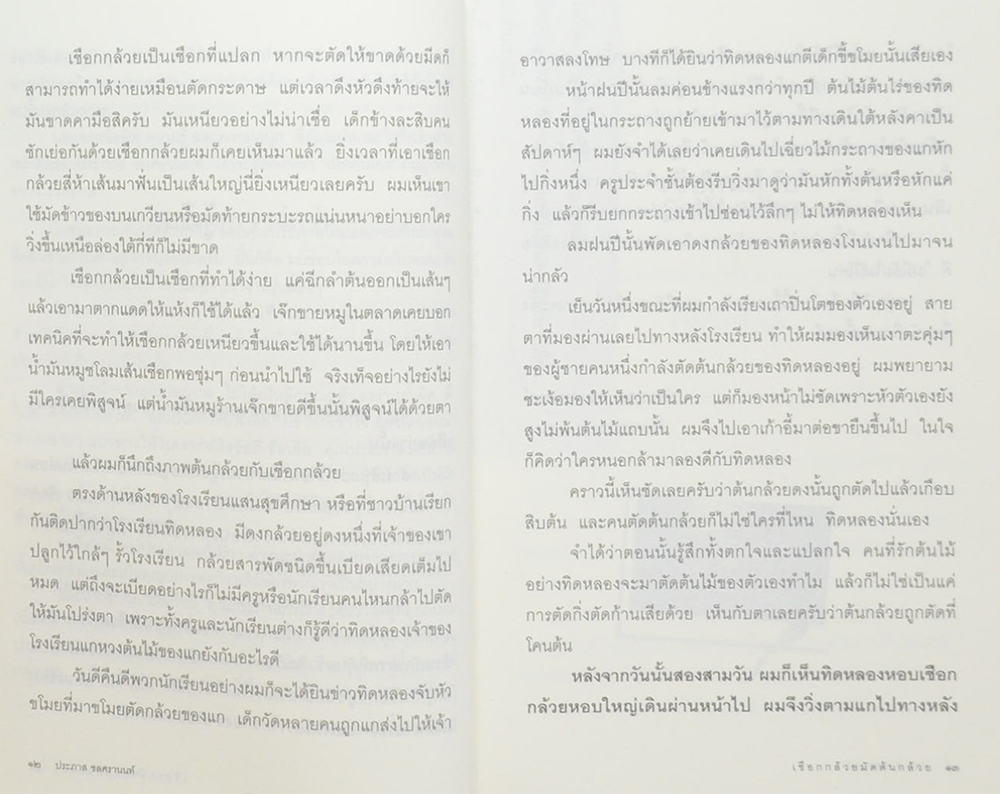 เชือกกล้วยเป็นเชือกที่แปลก หากจะตัดให้ขาดด้วยมีดก็
สามารถทำได้ง่ายเหมือนตัดกระดาษ แต่เวลาดึงหัวดึงท้ายจะให้
มันขาดคามือสิครับ มันเหนียวอย่างไม่น่าเชื่อ เด็กข้างละสิบคน
ชักเย่อกันด้วยเชือกกล้วยผมก็เคยเห็นมาแล้ว ยิ่งเวลาที่เอาเชือก
กล้วยสี่ห้าเส้นมาฟั่นเป็นเส้นใหญ่นี่ยิ่งเหนียวเลยครับ ผมเห็นเขา
ใช้มัดข้าวของบนเกวียนหรือมัดท้ายกระบะรถแน่นหนาอย่าบอกใคร
วิ่งขึ้นเหนือล่องใต้กี่ทีก็ไม่มีขาด
เชือกกล้วยเป็นเชือกที่ทำได้ง่าย แค่ฉีกลำต้นออกเป็นเส้นๆ
แล้วเอามาตากแดดให้แห้งก็ใช้ได้แล้ว เจ๊กขายหมูในตลาดเคยบอก
เทคนิคที่จะทำให้เชือกกล้วยเหนียวขึ้นและใช้ได้นานขึ้น โดยให้เอา
น้ำมันหมูชโลมเส้นเชือกพอชุ่มๆ ก่อนนำไปใช้ จริงเท็จอย่างไรยังไม่
มีใครเคยพิสูจน์ แต่น้ำมันหมูร้านเจ๊กขายดีขึ้นนั้นพิสูจน์ได้ด้วยตา
แล้วผมก็นึกถึงภาพต้นกล้วยกับเชือกกล้วย
ตรงด้านหลังของโรงเรียนแสนสุขศึกษา หรือที่ชาวบ้านเรียก
กันติดปากว่าโรงเรียนทิดหลอง มีดงกล้วยอยู่ดงหนึ่งที่เจ้าของเขา
ปลูกไว้ใกล้ๆ รั้วโรงเรียน กล้วยสารพัดชนิดขึ้นเบียดเสียดเต็มไป
หมด แต่ถึงจะเบียดอย่างไรก็ไม่มีครูหรือนักเรียนคนไหนกล้าไปตัด
ให้มันโปร่งตา เพราะทั้งครูและนักเรียนต่างก็รู้ดีว่าทิดหลองเจ้าของ
โรงเรียนแกหวงต้นไม้ของแกยังกับอะไรดี
วันดีคืนดีพวกนักเรียนอย่างผมก็จะได้ยินข่าวทิดหลองจับหัว
ขโมยที่มาขโมยตัดกล้วยของแก เด็กวัดหลายคนถูกแกส่งไปให้เจ้า
๑๒ ประภาส ชลศรานนท์
อาวาสลงโทษ บางทีก็ได้ยินว่าทิดหลองแกตีเด็กขี้ขโมยนั้นเสียเอง
หน้าฝนปีนั้นลมค่อนข้างแรงกว่าทุกปี ต้นไม้ต้นไร่ของทิด
หลองที่อยู่ในกระถางถูกย้ายเข้ามาไว้ตามทางเดินใต้หลังคาเป็น
สัปดาห์ๆ ผมยังจำได้เลยว่าเคยเดินไปเฉี่ยวไม้กระถางของแกหัก
ไปกิ่งหนึ่ง ครูประจำชั้นต้องรีบวิ่งมาดูว่ามันหักทั้งต้นหรือหักแค่
กิ่ง แล้วก็รีบยกกระถางเข้าไปซ่อนไว้ลึกๆ ไม่ให้ทิดหลองเห็น
ลมฝนปีนั้นพัดเอาดงกล้วยของทิดหลองโงนเงนไปมาจน
น่ากลัว
เย็นวันหนึ่งขณะที่ผมกำลังเรียงเถาปิ่นโตของตัวเองอยู่ สาย
ตาที่มองผ่านเลยไปทางหลังโรงเรียน ทำให้ผมมองเห็นเงาตะคุ่มๆ
ของผู้ชายคนหนึ่งกำลังตัดต้นกล้วยของทิดหลองอยู่ ผมพยายาม
ชะเง้อมองให้เห็นว่าเป็นใคร แต่ก็มองหน้าไม่ชัดเพราะหัวตัวเองยัง
สูงไม่พ้นต้นไม้แถบนั้น ผมจึงไปเอาเก้าอี้มาต่อขายืนขึ้นไป ในใจ
ก็คิดว่าใครหนอกล้ามาลองดีกับทิดหลอง
คราวนี้เห็นชัดเลยครับว่าต้นกล้วยดงนั้นถูกตัดไปแล้วเกือบ
สิบต้น และคนตัดต้นกล้วยก็ไม่ใช่ใครที่ไหน ทิดหลองนั่นเอง
จำได้ว่าตอนนั้นรู้สึกทั้งตกใจและแปลกใจ คนที่รักต้นไม้
อย่างทิดหลองจะมาตัดต้นไม้ของตัวเองทำไม แล้วก็ไม่ใช่เป็นแค่
การตัดกิ่งตัดก้านเสียด้วย เห็นกับตาเลยครับว่าต้นกล้วยถูกตัดที่
โคนต้น
หลังจากวันนั้นสองสามวัน ผมก็เห็นทิดหลองหอบเชือก
กล้วยหอบใหญ่เดินผ่านหน้าไป ผมจึงวิ่งตามแกไปทางหลัง
เชือกกล้วยมัดต้นกล้วย ๑๓